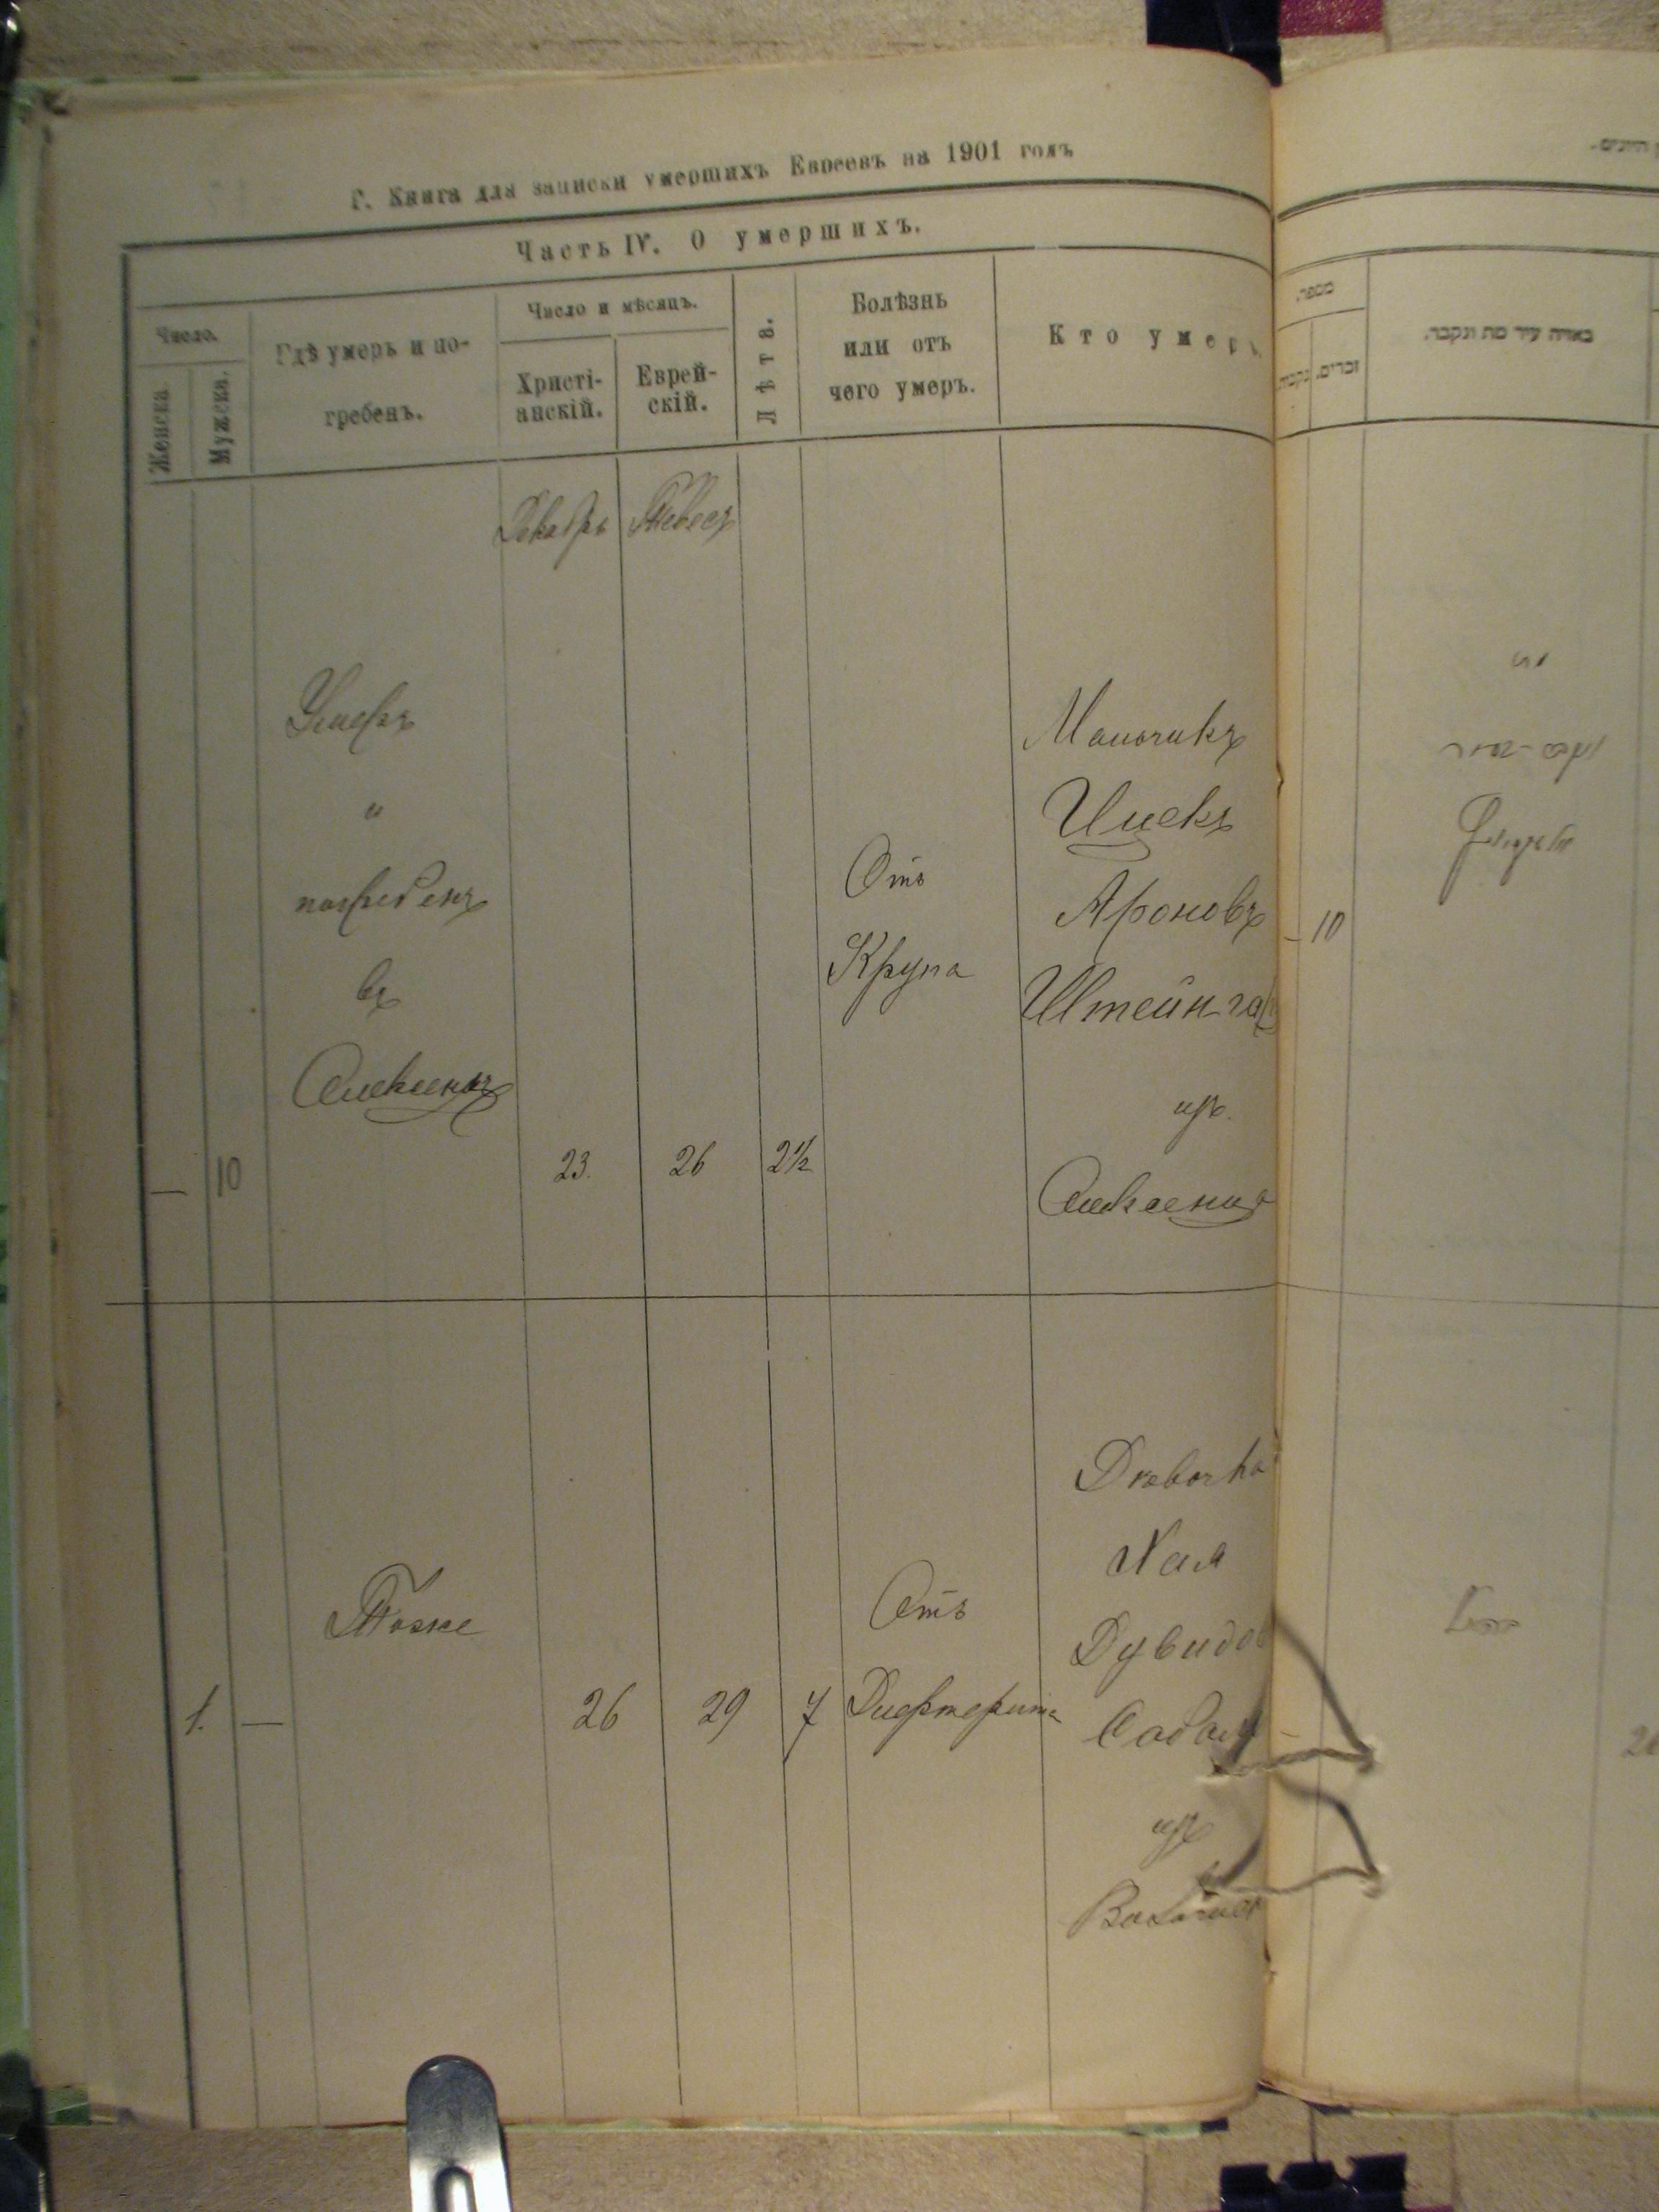 Г. Книга для записки умершихъ Евреевъ на 1901 годъ
Часть IV. О умершихъ.
Число.
Женска
Мужска.
Гдѣ умеръ и по-
гребенъ.
Число и мѣсяцъ.
Христі-
анскій.
Еврей-
скій.
Лѣта.
Болѣзнь
или отъ
чего умеръ.
Кто умеръ
Декабрь
Тевесъ
—
10
Умеръ
"
погребенъ
въ
23.
26
2½
Отъ
Крупа
Мальчикъ
Ицекъ
Ароновъ
Штейнга
изъ
1.
—
Тоже
26
29
7
Отъ
Дифтерита
Дѣвочка
Хая
Дувидов
изъ
מספר.
נקבות.
זכרים.
באיזה עיר מת ונקבר.
10